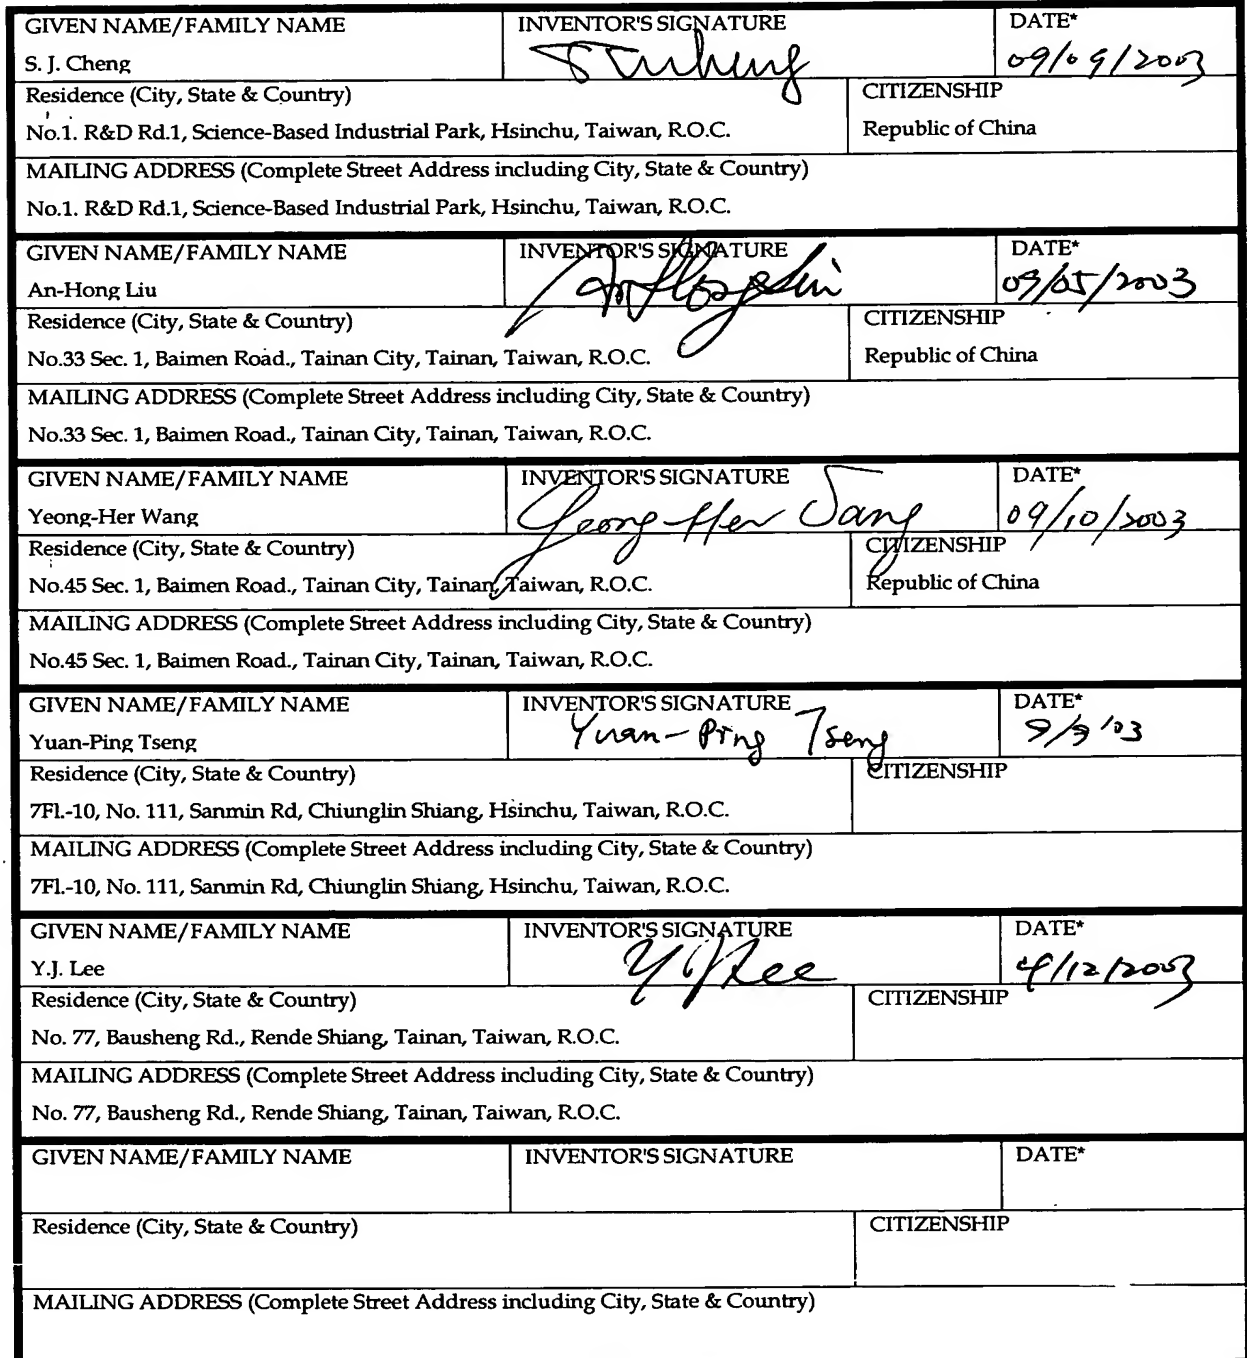 GIVEN NAME/FAMILY NAME INVENTOR'S SIGNATURE DATE*
S. J. Cheng 09/09/2003
Residence (City, State & Country) CITIZENSHIP
No.1. R&D Rd.1, Science-Based Industrial Park, Hsinchu, Taiwan, R.O.C. Republic of China
MAILING ADDRESS (Complete Street Address including City, State & Country)
No.1. R&D Rd.1, Science-Based Industrial Park, Hsinchu, Taiwan, R.O.C.
GIVEN NAME/FAMILY NAME INVENTOR'S SIGNATURE DATE*
An-Hong Liu An Hong Liu 09/05/2003
Residence (City, State & Country) CITIZENSHIP
No.33 Sec. 1, Baimen Road., Tainan City, Tainan, Taiwan, R.O.C. Republic of China
MAILING ADDRESS (Complete Street Address including City, State & Country)
No.33 Sec. 1, Baimen Road., Tainan City, Tainan, Taiwan, R.O.C.
GIVEN NAME/FAMILY NAME INVENTOR'S SIGNATURE DATE*
Yeong-Her Wang Yeong-Her Wang 09/10/2003
Residence (City, State & Country) CITIZENSHIP
No.45 Sec. 1, Baimen Road., Tainan City, Tainan, Taiwan, R.O.C. Republic of China
MAILING ADDRESS (Complete Street Address including City, State & Country)
No.45 Sec. 1, Baimen Road., Tainan City, Tainan, Taiwan, R.O.C.
GIVEN NAME/FAMILY NAME INVENTOR'S SIGNATURE DATE*
Yuan-Ping Tseng Yuan-Ping Tseng 9/9/'03
Residence (City, State & Country) CITIZENSHIP
7Fl.-10, No. 111, Sanmin Rd, Chiunglin Shiang, Hsinchu, Taiwan, R.O.C.
MAILING ADDRESS (Complete Street Address including City, State & Country)
7Fl.-10, No. 111, Sanmin Rd, Chiunglin Shiang, Hsinchu, Taiwan, R.O.C.
GIVEN NAME/FAMILY NAME INVENTOR'S SIGNATURE DATE*
Y.J. Lee Y J Lee 9/12/2003
Residence (City, State & Country) CITIZENSHIP
No. 77, Bausheng Rd., Rende Shiang, Tainan, Taiwan, R.O.C.
MAILING ADDRESS (Complete Street Address including City, State & Country)
No. 77, Bausheng Rd., Rende Shiang, Tainan, Taiwan, R.O.C.
GIVEN NAME/FAMILY NAME INVENTOR'S SIGNATURE DATE*
Residence (City, State & Country) CITIZENSHIP
MAILING ADDRESS (Complete Street Address including City, State & Country)